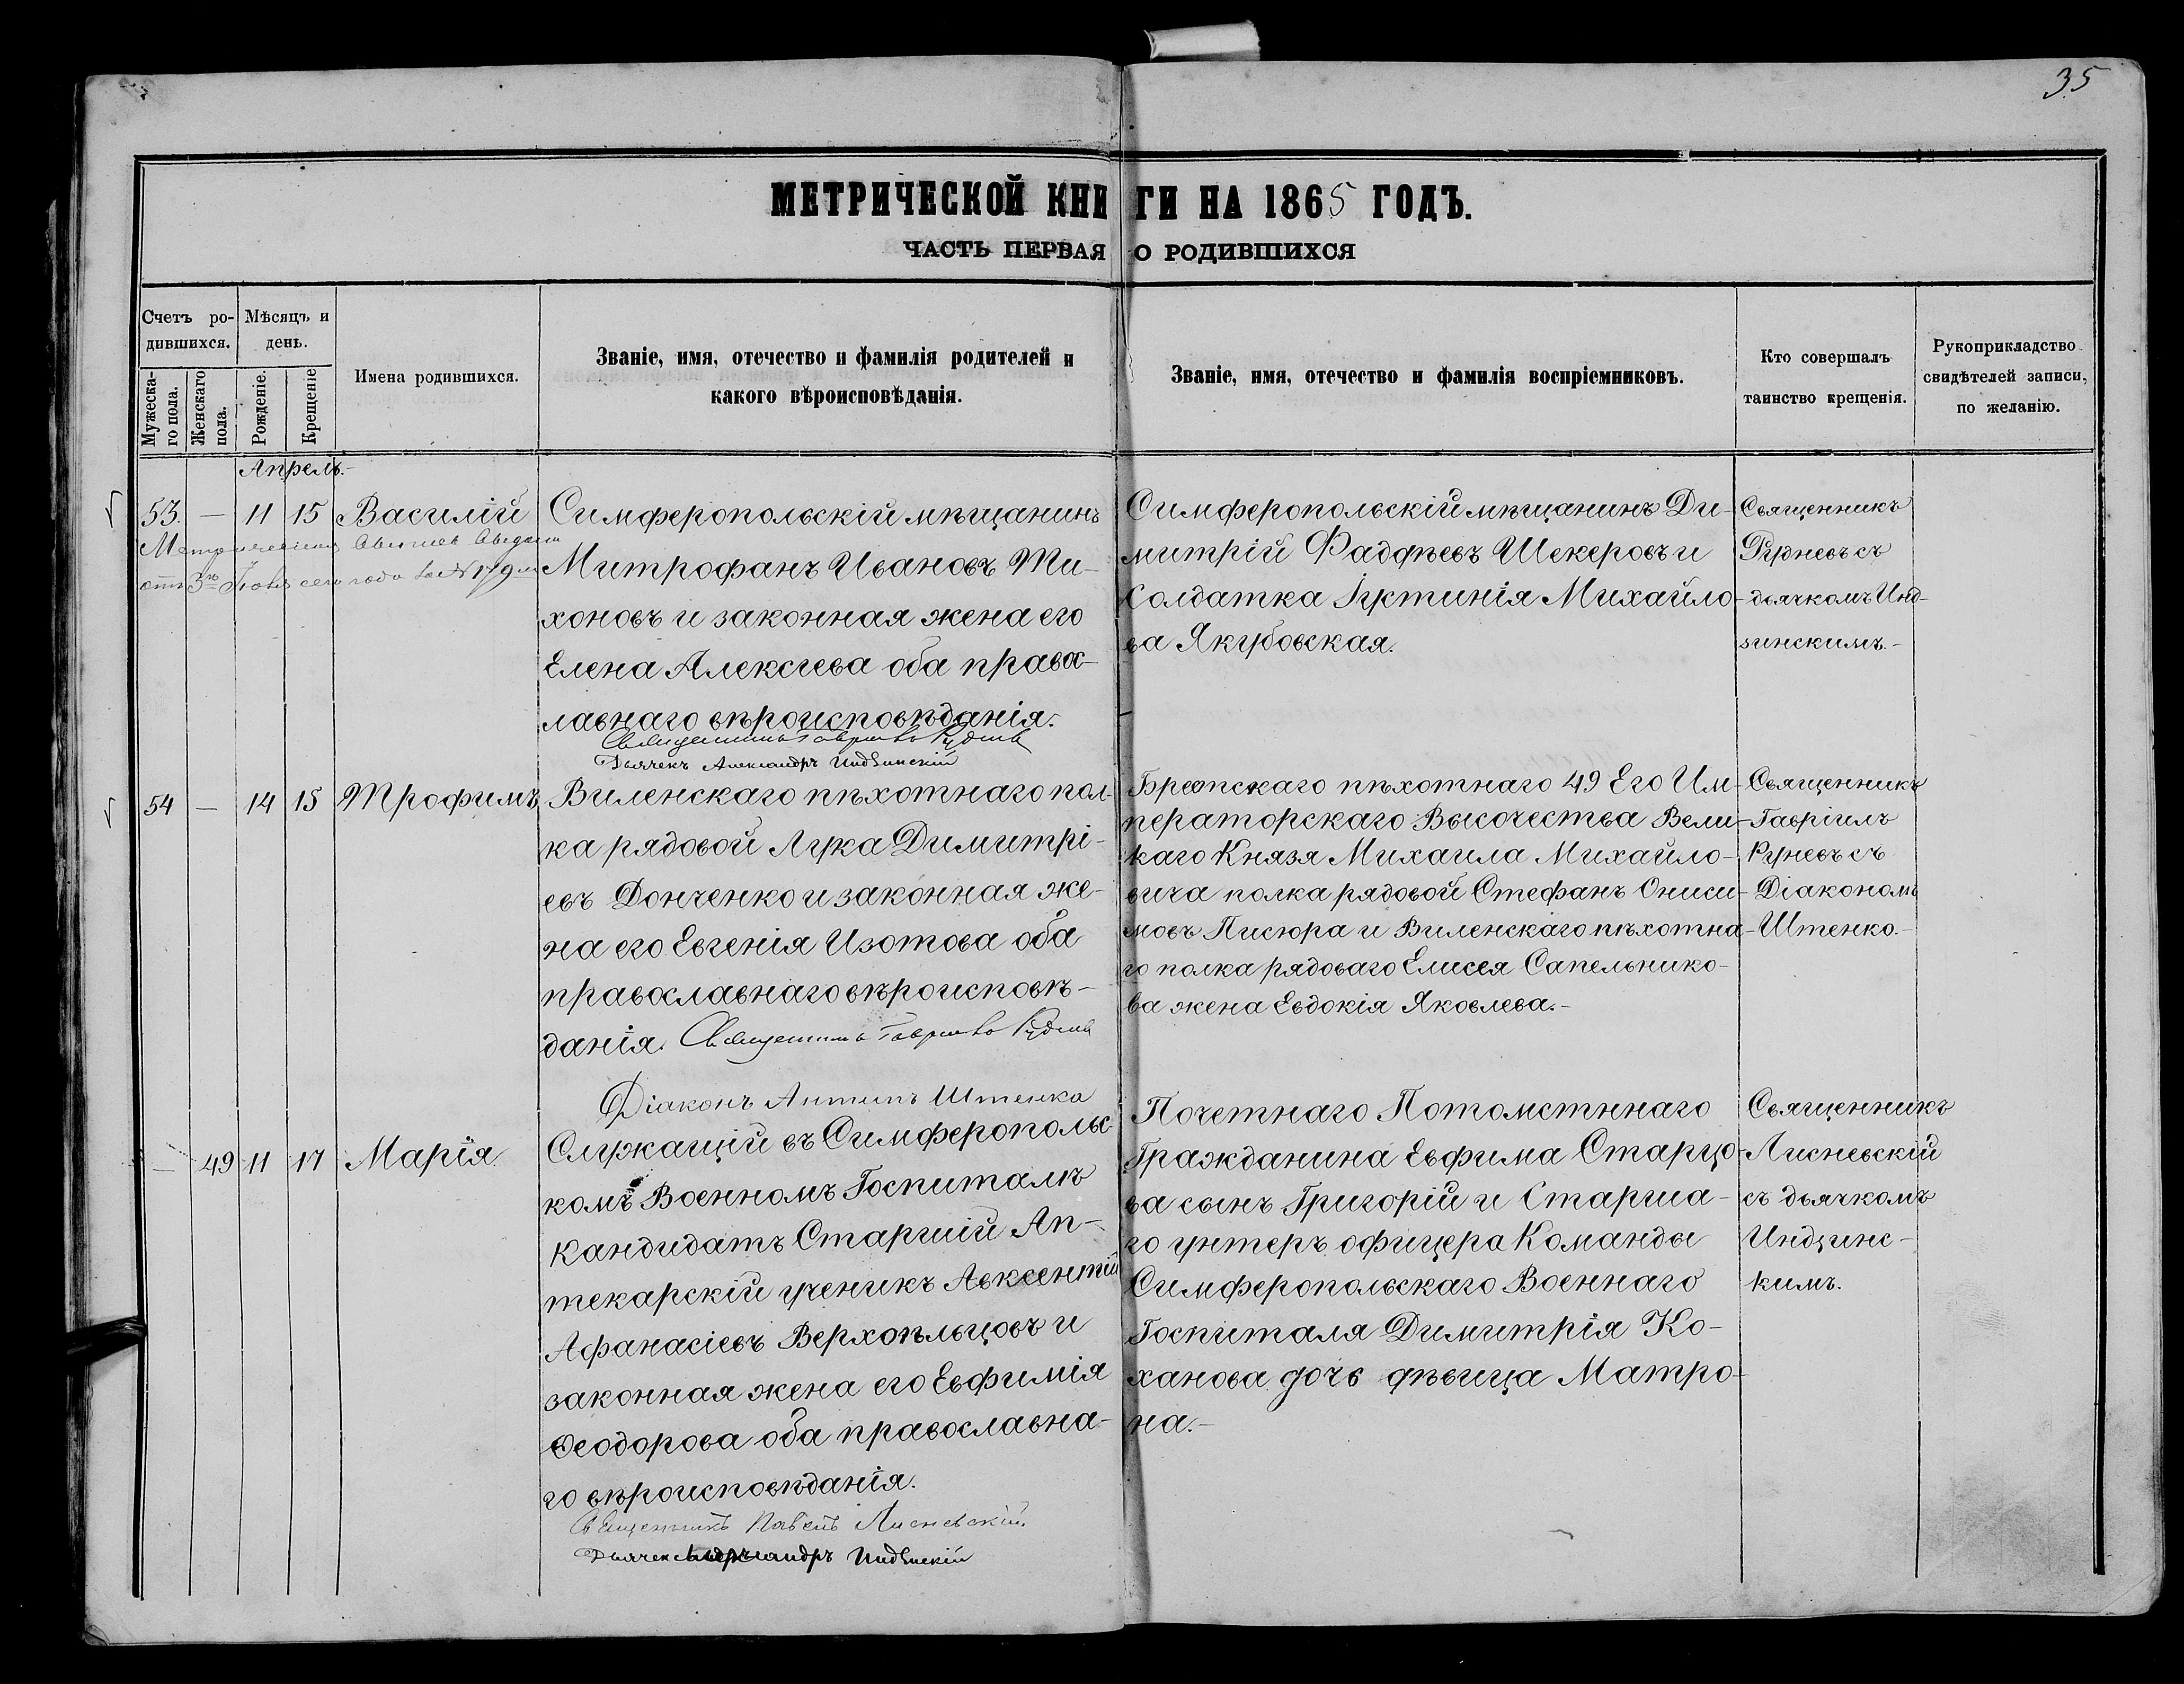 35
МЕТРИЧЕСКОЙ КНИГИ НА 1865 ГОДЪ.
ЧАСТЬ ПЕРВАЯ О РОДИВШИХСЯ
Счетъ ро-
дившихся.
Мужеска-
го пола.
Женскаго
пола.
Мѣсяцъ и
день.
Рожденіе.
Крещеніе
Имена родившихся.
Званіе, имя, отечество и фамилія родителей и
какого вѣроисповѣданія.
Званіе, имя, отечество и фамилія воспріемниковъ.
Кто совершалъ
таинство крещенія.
Рукоприкладство
свидѣтелей записи,
по желанію.
Апрель.-
53. — 11 15 Василій
отъ 3го Іюня сего года за №
Симферопольскій мѣщанинъ
Митрофанъ Ивановъ Ти-
хоновъ и законная жена его
Елена Алексѣева оба правос-
лавнаго вѣроисповѣданія.
Священникъ Гавріилъ
Дьячекъ Александръ Индзинскій
Симферопольскій мѣщанинъ Ди-
митрій Фаддѣевъ Шекеровъ и
Солдатка Іустинія Михайло-
ва Якубовская.
Священникъ
Рудневъ съ
дьячкомъ Инд-
зинскимъ.-
54 — 14 15 Трофимъ
Виленскаго пѣхотнаго пол-
ка рядовой Лука Димитрі-
евъ Донченко и законная же-
на его Евгенія Изотова оба
православнаго вѣроисповѣ-
данія. Священникъ Гавріилъ
Діаконъ Антипъ Штенко
Брестскаго пѣхотнаго 49 Его Им-
ператорскаго Высочества Вели-
каго Князя Михаила Михайло-
вича полка рядовой Стефанъ Ониси-
мовъ Писюра и Виленскаго пѣхотна-
го полка рядоваго Елисея Сапельнико-
ва жена Евдокія Яковлева.-
Священникъ
Гавріилъ
Руневъ съ
Діакономъ
Штенко.-
— 49 11 17 Марія
Служащій въ Симферопольс-
комъ Военномъ Госпиталѣ
Кандидатъ Старшій Ап-
текарскій ученикъ Авксентій
Афанасіевъ Верхопѣльцовъ и
законная жена его Евфимія
Ѳеодорова оба православна-
го вѣроисповѣданія.
Священникъ Павелъ Лисневскій.
Дьячекъ Александръ Индзинскій
Почетнаго Потомстннаго
Гражданина Евфима Старцо-
ва сынъ Григорій и Старша-
го унтеръ офицера Команды
Симферопольскаго Военнаго
Госпиталя Димитрія Ко-
ханова дочь дѣвица Матро-
на.-
Священникъ
Лисневскій
съ дьячкомъ
Индзинс-
кимъ.